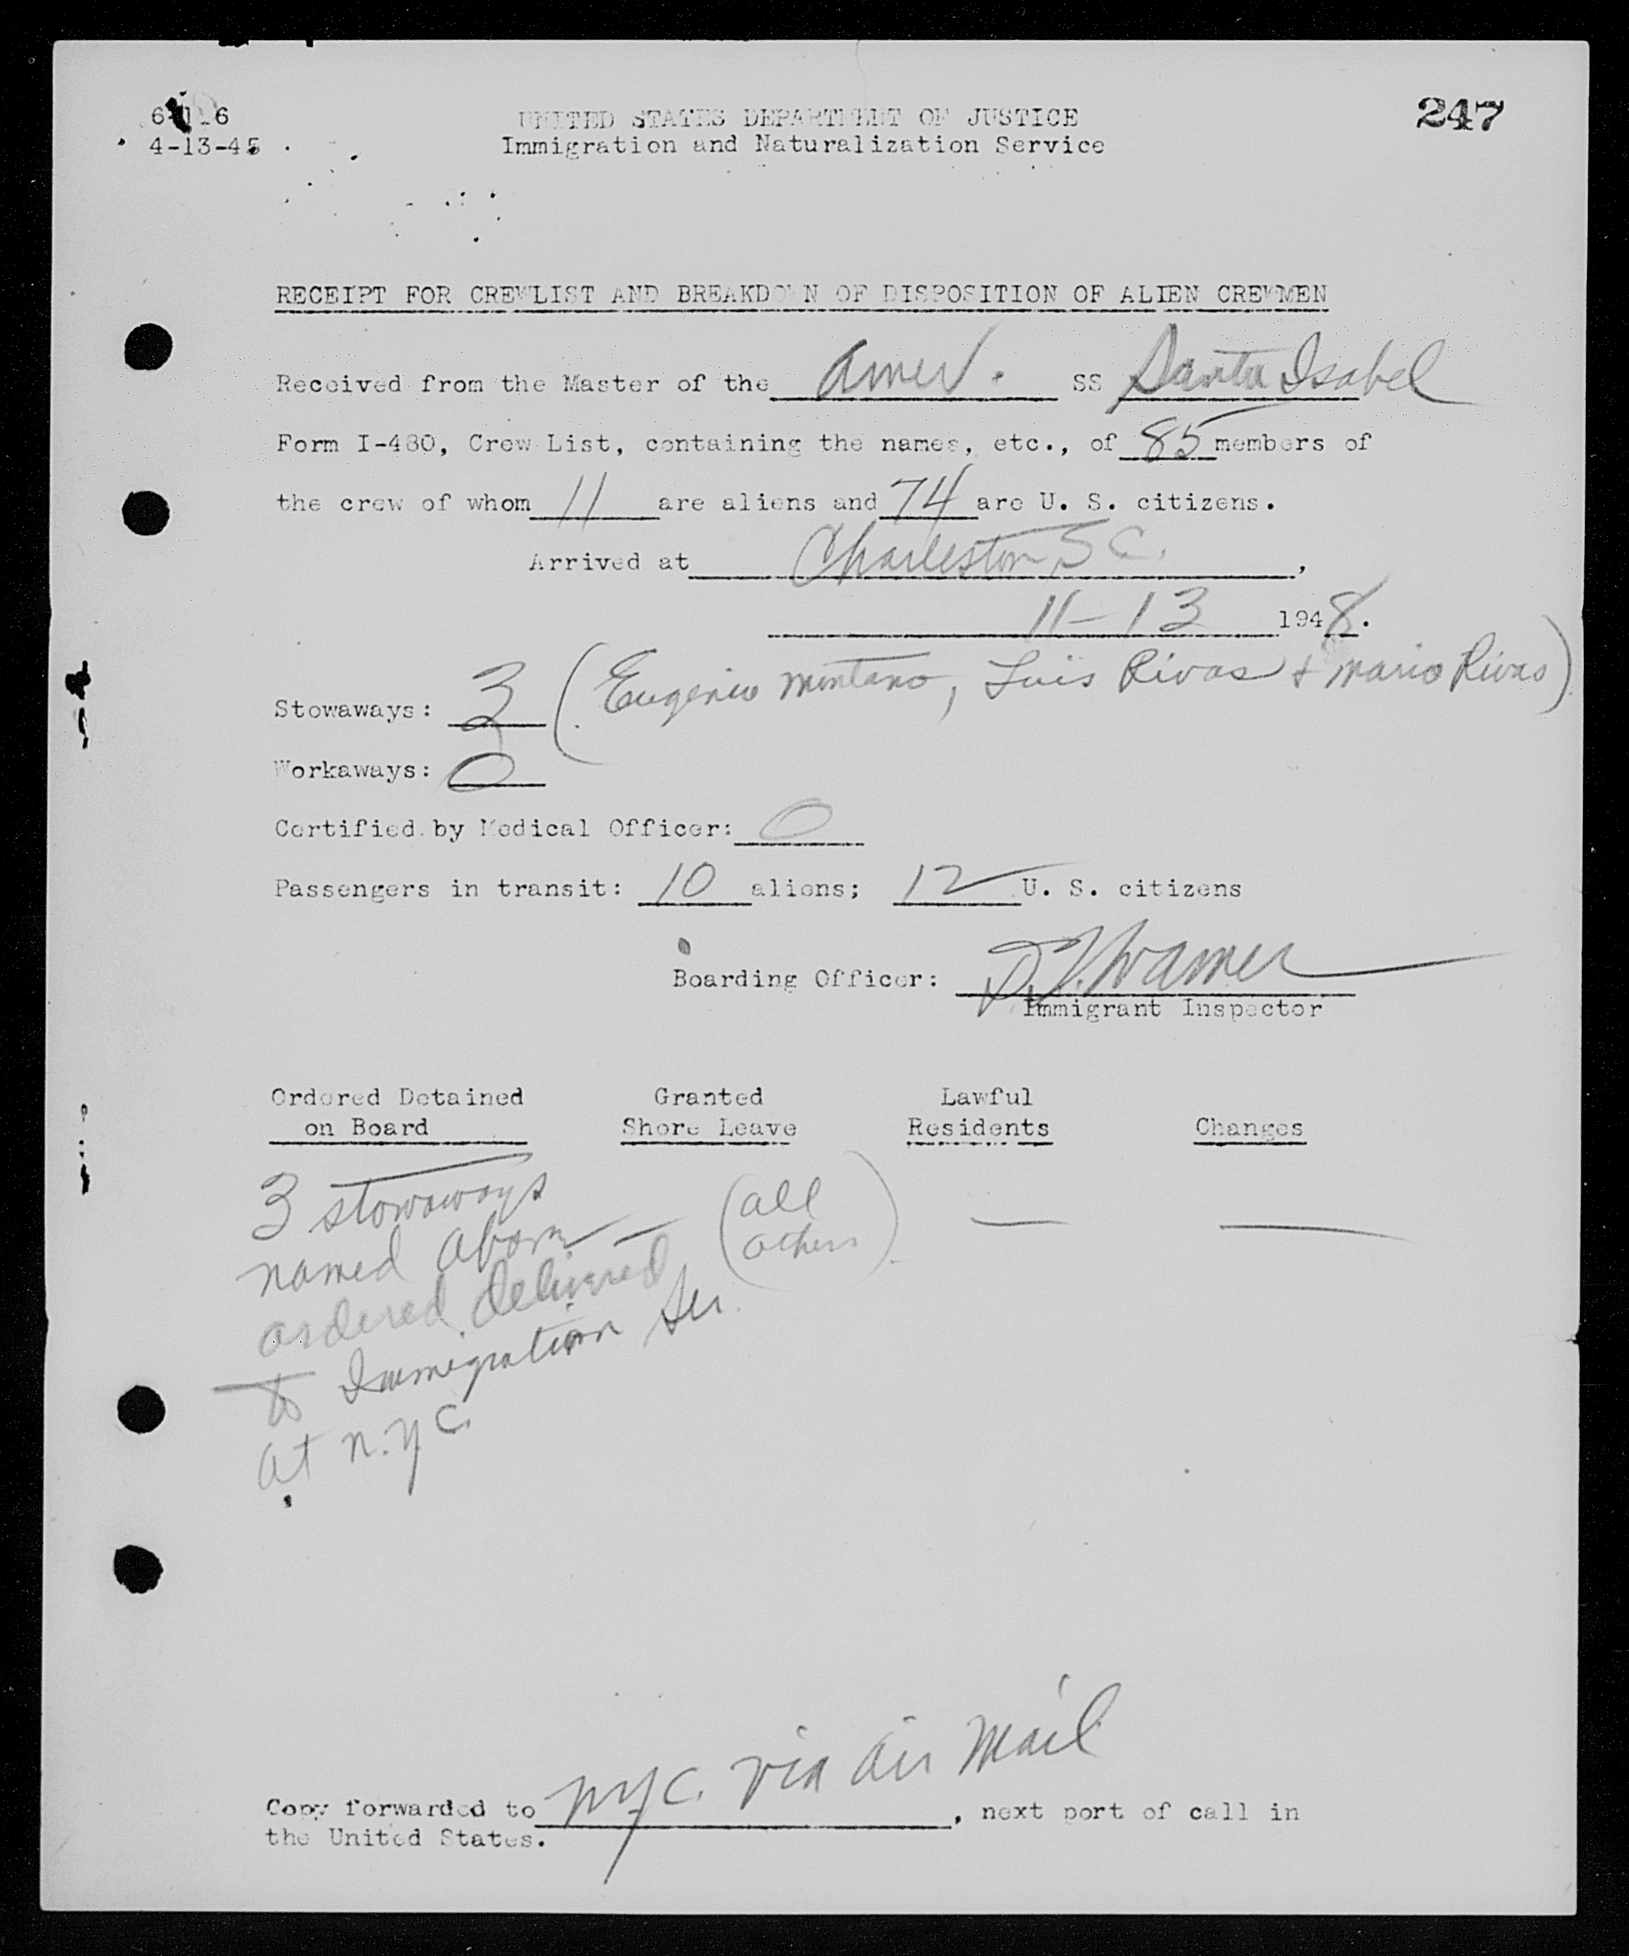 247
4-13-45
UNITED STATES DEPARTMENT OF JUSTICE
Immigration and Naturalization Service
RECEIPT FOR CREWLIST AND BREAKDOWN OF DISPOSITION OF ALIEN CREWMEN
Received from the Master of the Amer. SS Santa Isabel
Form I-480, Crew List, containing the names, etc., of 85 members of
the crew of whom 11 are aliens and 74 are U. S. citizens.
Arrived at Charleston, S C.,
11-13 1948.
Stowaways: 3 (Eugenio Montano, Luis Rivas & Mario Rivas)
Workaways: 0
Certified by Medical Officer: 0
Passengers in transit: 10 aliens; 12 U. S. citizens
Boarding Officer:
Immigrant Inspector
Ordered Detained Granted Lawful
on Board Shore Leave Residents Changes
3 stowaways (all
named above — others) — —
ordered delivered
to Immigration Ser.
at N.Y.C.
Copy forwarded to NYC. via Air Mail, next port of call in
the United States.